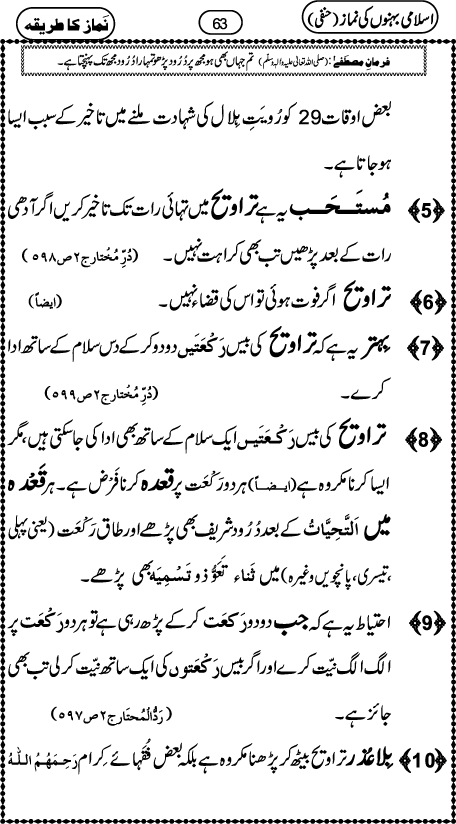 اسلامی بہنوں کی نماز (حنفی)
63
نماز کا طریقہ
فرمانِ مصطفےٰ: (صلی اللہ تعالیٰ علیہ واٰلہٖ وسلم) تم جہاں بھی ہو مجھ پر دُرُود پڑھو تمہارا دُرُود مجھ تک پہنچتا ہے۔
بعض اوقات 29 کو رُویتِ ہِلال کی شہادت ملنے میں تاخیر کے سبب ایسا
ہو جاتا ہے۔
﴿5﴾ مُستَحَب یہ ہے تراویح میں تہائی رات تک تاخیر کریں اگر آدھی
رات کے بعد پڑھیں تب بھی کراہت نہیں۔ (دُرِّ مُختار ج۲ ص۵۹۸)
﴿6﴾ تراویح اگر فوت ہوئی تو اس کی قضاء نہیں۔ (ایضاً)
﴿7﴾ بہتر یہ ہے کہ تراویح کی بیس رَکْعَتیں دو دو کر کے دس سلام کے ساتھ ادا
کرے۔ (دُرِّ مُختار ج۲ ص۵۹۹)
﴿8﴾ تراویح کی بیس رَکْعَتیں ایک سلام کے ساتھ بھی ادا کی جا سکتی ہیں، مگر
ایسا کرنا مکروہ ہے (ایضاً) ہر دو رَکْعَت پر قعدہ کرنا فَرْض ہے۔ ہر قَعْدہ
میں اَلتَّحِیَّات کے بعد دُرُود شریف بھی پڑھے اور طاق رَکْعَت (یعنی پہلی
،تیسری، پانچویں وغیرہ) میں ثَناء تَعَوُّذ و تَسْمِیَہ بھی پڑھے۔
﴿9﴾ احتیاط یہ ہے کہ جب دو دو رَکعَت کر کے پڑھ رہی ہے تو ہر دو رَکْعَت پر
الگ الگ نیّت کرے اور اگر بیس رَکْعَتوں کی ایک ساتھ نیّت کر لی تب بھی
جائز ہے۔ (رَدُّالْمُحتَار ج۲ ص۵۹۷)
﴿10﴾ بِلا عُذر تراویح بیٹھ کر پڑھنا مکروہ ہے بلکہ بعض فُقَہائے کِرام رَحِمَہُمُ اللہُ